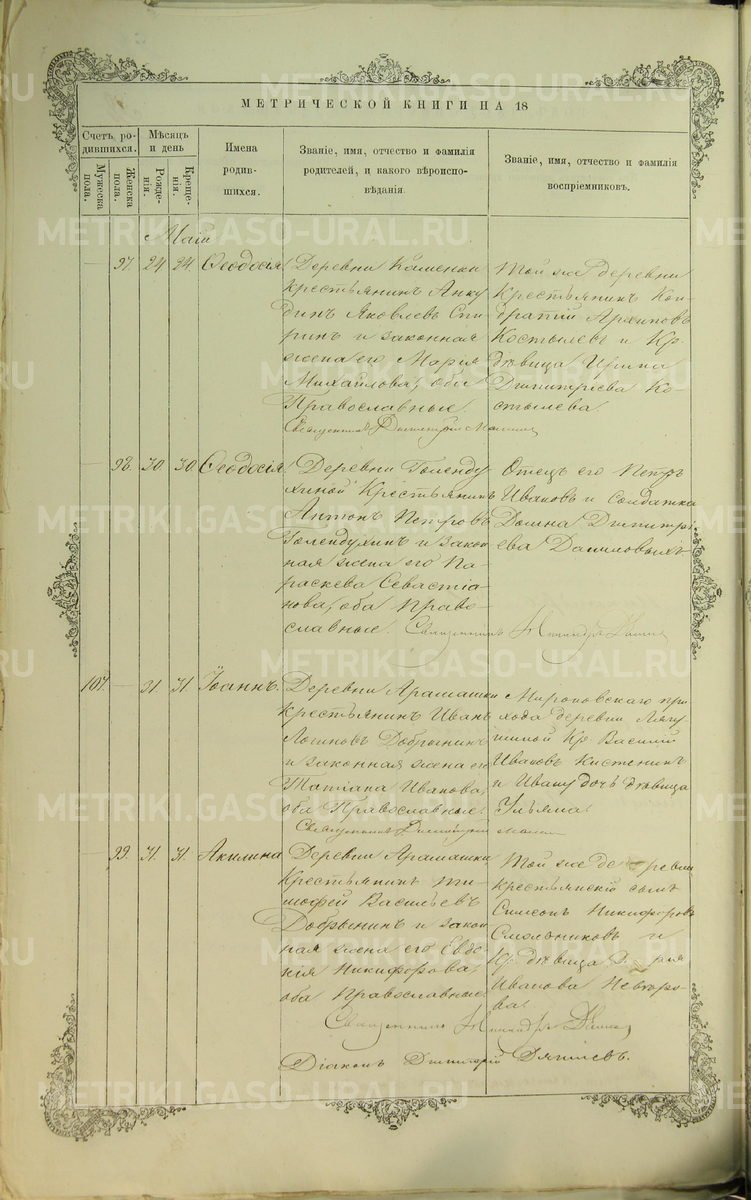 МЕТРИЧЕСКОЙ КНИГИ НА 18
Счетъ ро-
дившихся.
Мужеска
пола.
Женска
пола.
Мѣсяцъ
и день
Рожде-
нія.
Креще-
нія.
Имена
родив-
шихся.
Званіе, имя, отчество и фамилія
родителей, и какого вѣроиспо-
вѣданія.
Званіе, имя, отчество и фамилія
воспріемниковъ.
Маій
97. 24 24. Ѳеодосія.
Деревни Каменки
крестьянинъ Анку
динъ Яковлевъ Спи
ринъ и законная
жена его Марія
Михайлова, оба
Православные.
Священникъ Димитрій
Той же деревни
Крестьянинъ Кон
дратій Архиповъ
Костылевъ и Кр.
дѣвица Ирина
Димитріева Ко-
стылева.
98. 30. 30. Ѳеодосія.
Деревни Голенду
хиной Крестьянинъ
Антонъ Петровъ
Голендухинъ и закон
ная жена его Па-
раскева Севастіа-
нова, оба право-
славные. Священникъ
Отецъ его Петръ
Ивановъ и Солдатка
Домна Димитрі
ева Даниловыхъ
107. — 31. 31. Іоаннъ.
Деревни Арамашки
крестьянинъ Иванъ
Логиновъ Добрынинъ
и законная жена его
Татіана Иванова,
оба Православные.
Священникъ Димитрій
Мироновскаго при
хода деревни Лягу
шиной Кр. Василій
Ивановъ Кистенинъ
и Ивану дочь дѣвица
Ульяна.
99. 31. 31. Акилина
Деревни Арамашки
Крестьянинъ Ти-
мофей Васильевъ
Добрынинъ и закон
ная жена его Евге-
нія Никифорова,
оба Православные.
Священникъ
Той же деревни
крестьянскій сынъ
Симеонъ Никифоровъ
Смольниковъ и
Кр. дѣвица
Иванова
ва.
Діаконъ Димитрій
METRIKI.GASO-URAL.RU